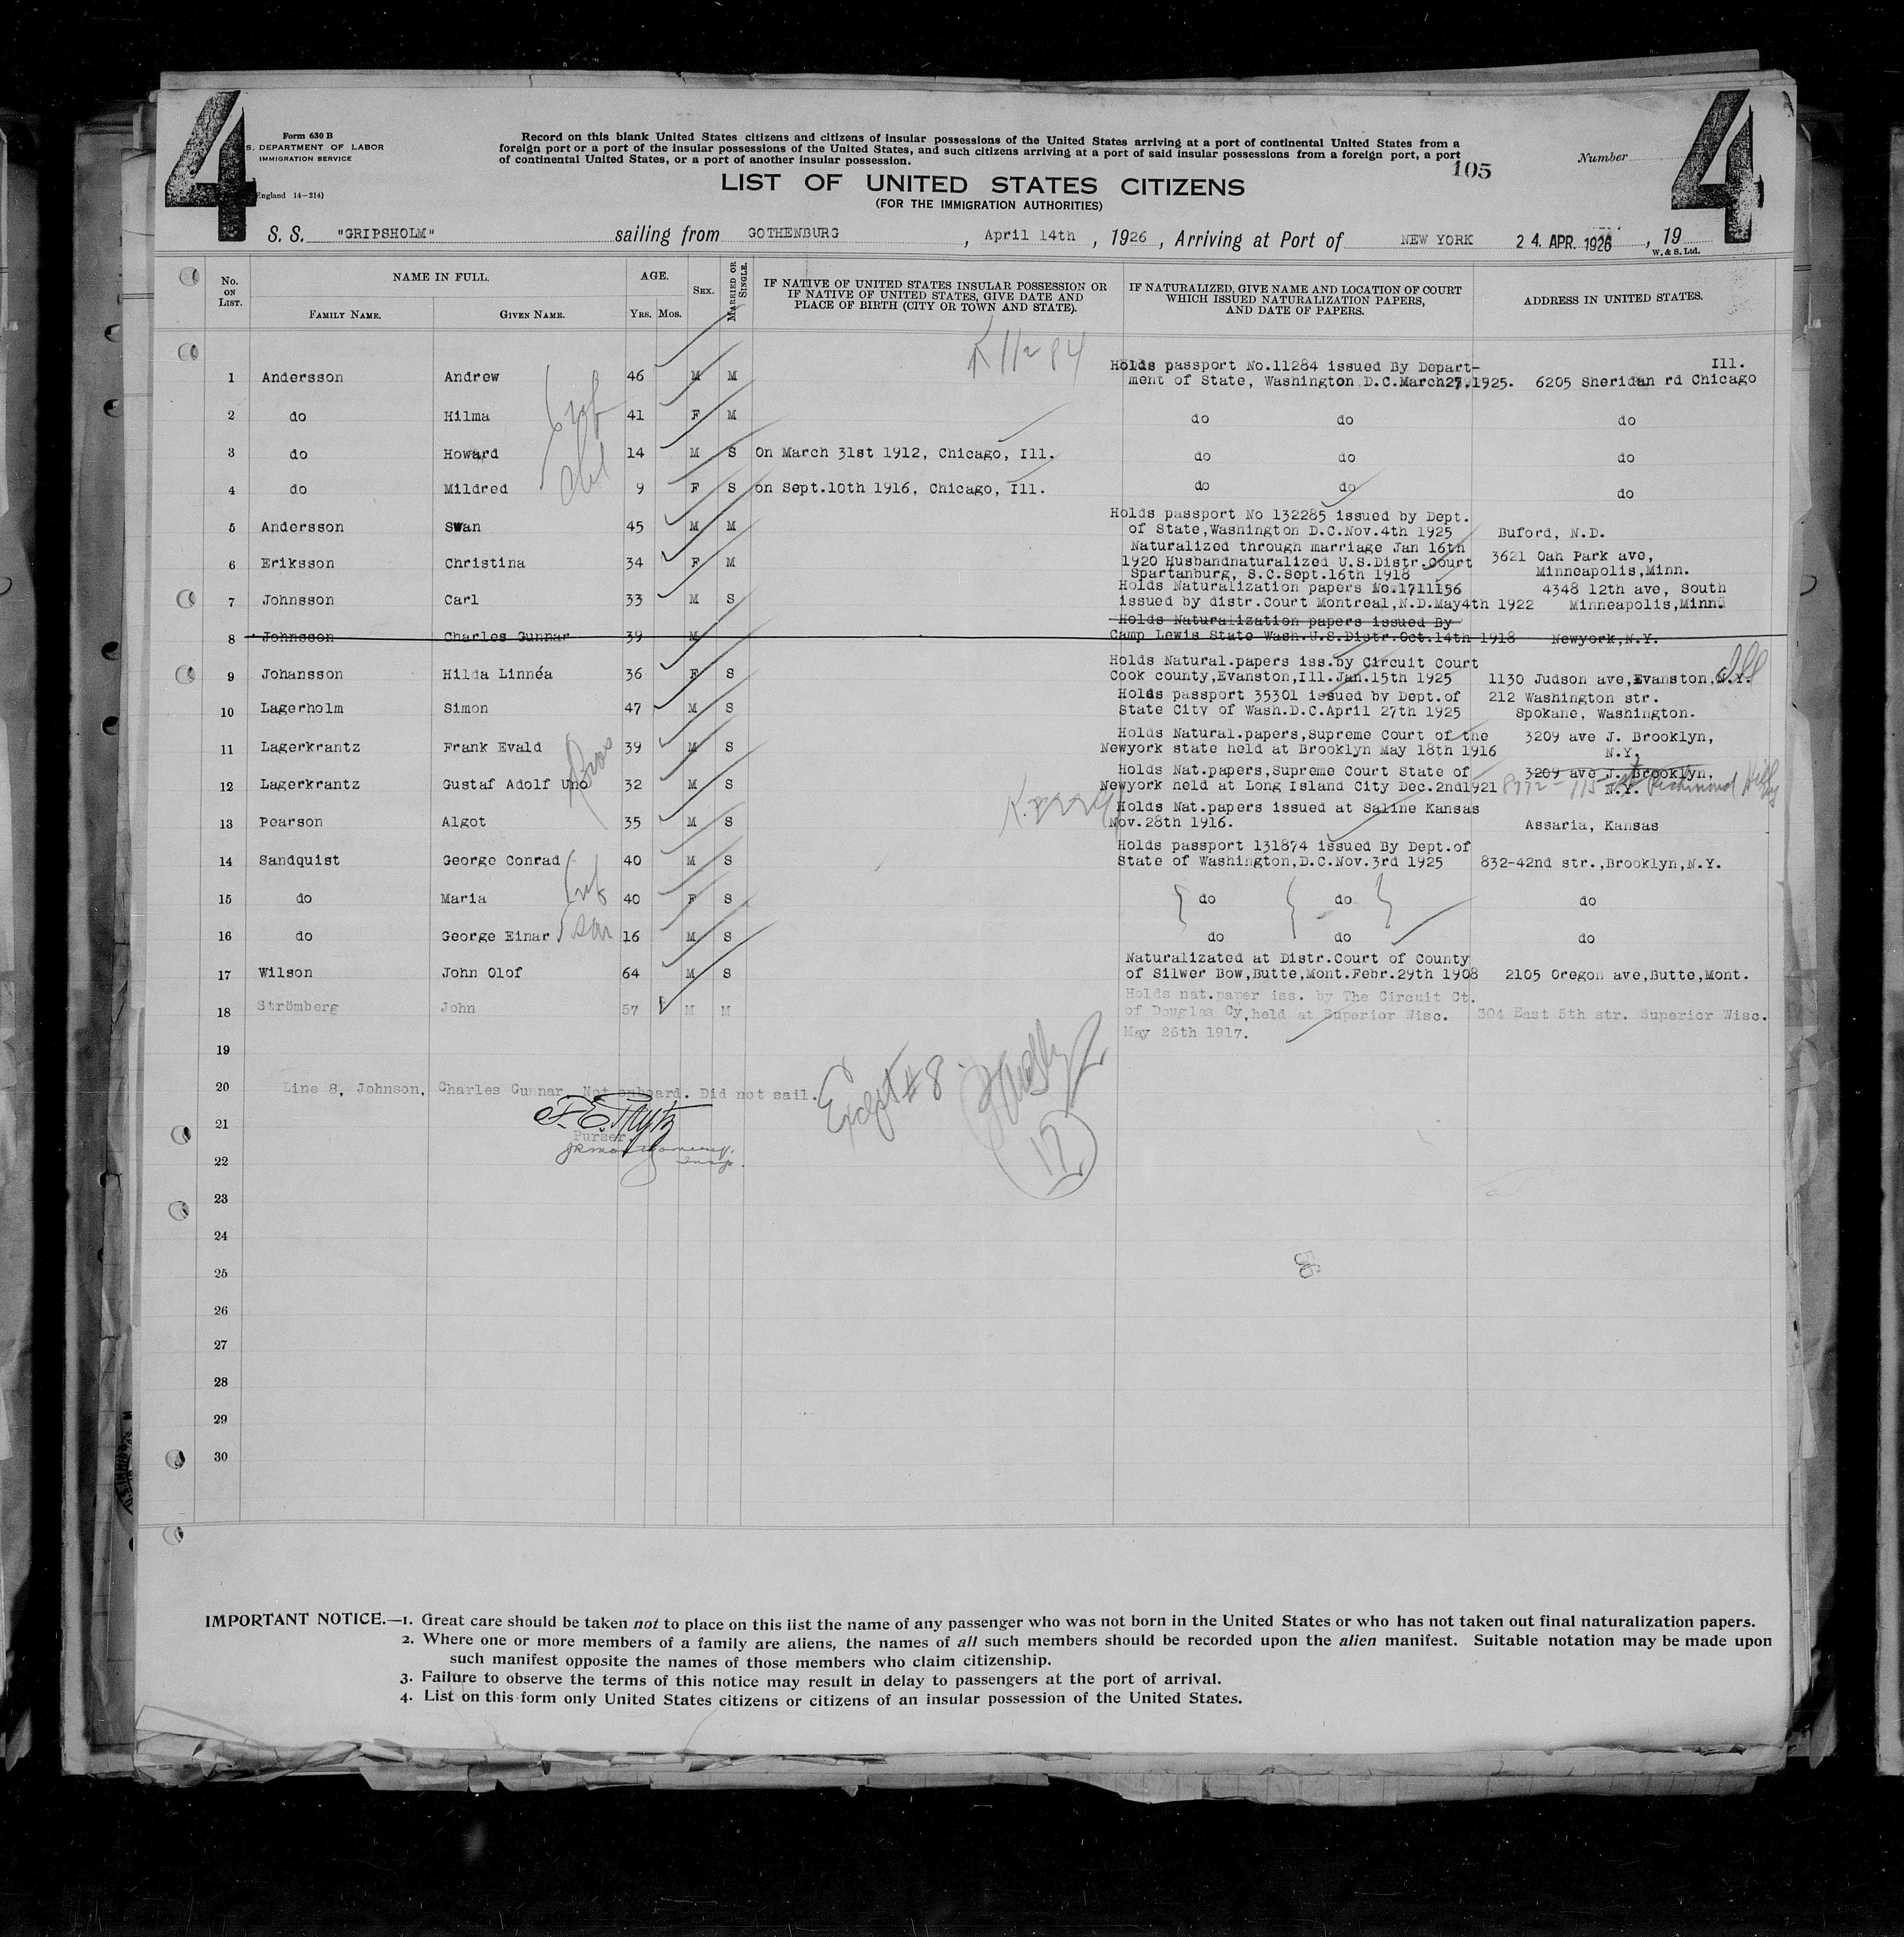 4
4
Form 630 B
S. DEPARTMENT OF LABOR
IMMIGRATION SERVICE
England 14—214)
Record on this blank United States citizens and citizens of insular possessions of the United States arriving at a port of continental United States from a
foreign port or a port of the insular possessions of the United States, and such citizens arriving at a port of said insular possessions from a foreign port, a port
of continental United States, or a port of another insular possession.
Number
105
LIST OF UNITED STATES CITIZENS
(FOR THE IMMIGRATION AUTHORITIES)
S. S. "GRIPSHOLM" sailing from GOTHENBURG, April 14th, 1926, Arriving at Port of NEW YORK 24. APR. 1926, 19
W. & S. Ltd.
No. ON LIST. NAME IN FULL. AGE. SEX. MARRIED OR SINGLE. IF NATIVE OF UNITED STATES INSULAR POSSESSION OR IF NATIVE OF UNITED STATES, GIVE DATE AND PLACE OF BIRTH (CITY OR TOWN AND STATE). IF NATURALIZED, GIVE NAME AND LOCATION OF COURT WHICH ISSUED NATURALIZATION PAPERS, AND DATE OF PAPERS. ADDRESS IN UNITED STATES.
FAMILY NAME. GIVEN NAME. YRS. MOS.
K 11284
Holds passport No.11284 issued By Depart- Ill.
1 Andersson Andrew 46 M M ment of State, Washington D.C.March27,1925. 6205 Sheridan rd Chicago
2 do Hilma 41 F M do do do
3 do Howard 14 M S On March 31st 1912, Chicago, Ill. do do do
4 do Mildred 9 F S on Sept.10th 1916, Chicago, Ill. do do do
Holds passport No 132285 issued by Dept.
5 Andersson Swan 45 M M of State,Washington D.C.Nov.4th 1925 Buford, N.D.
Naturalized through marriage Jan 16th
6 Eriksson Christina 34 F M 1920 Husbandnaturalized U.S.Distr.Court 3621 Oah Park ave,
Spartanburg, S.C.Sept.16th 1918 Minneapolis,Minn.
Holds Naturalization papers No.1711156 4348 12th ave, South
7 Johnsson Carl 33 M S issued by distr.Court Montreal,N.D.May4th 1922 Minneapolis,Minn.
Holds Naturalization papers issued By
8 Johnsson Charles Gunnar 39 M Camp Lewis State Wash.U.S.Distr.Oct.14th 1918 Newyork,N.Y.
Holds Natural.papers iss.by Circuit Court Ill
9 Johansson Hilda Linnéa 36 F S Cook county,Evanston,Ill.Jan.15th 1925 1130 Judson ave,Evanston,N.Y.
Holds passport 35301 issued by Dept.of 212 Washington str.
10 Lagerholm Simon 47 M S State City of Wash.D.C.April 27th 1925 Spokane, Washington.
Holds Natural.papers,Supreme Court of the 3209 ave J. Brooklyn,
11 Lagerkrantz Frank Evald Bros 39 M S Newyork state held at Brooklyn May 18th 1916 N.Y.
Holds Nat.papers,Supreme Court State of 3209 ave J. Brooklyn,
12 Lagerkrantz Gustaf Adolf Uno 32 M S Newyork held at Long Island City Dec.2nd1921 N.Y. Richmond Hill
Holds Nat.papers issued at Saline Kansas
13 Pearson Algot 35 M S Nov.28th 1916. Assaria, Kansas
Holds passport 131874 issued By Dept.of
14 Sandquist George Conrad 40 M S State of Washington,D.C.Nov.3rd 1925 832-42nd str.,Brooklyn,N.Y.
15 do Maria 40 F S do do do
16 do George Einar son 16 M S do do do
Naturalizated at Distr.Court of County
17 Wilson John Olof 64 M S of Silwer Bow,Butte,Mont.Febr.29th 1908 2105 Oregon ave,Butte,Mont.
Holds nat.paper iss. by The Circuit Ct.
18 Strömberg John 57 M M of Douglas Cy,held at Superior Wisc. 304 East 5th str. Superior Wisc.
May 26th 1917.
19
20 Line 8, Johnson, Charles Gunnar. Not onboard. Did not sail. Except #8
21
Purser.
22
17
23
24
25
26
27
28
29
30
IMPORTANT NOTICE.—1. Great care should be taken not to place on this list the name of any passenger who was not born in the United States or who has not taken out final naturalization papers.
2. Where one or more members of a family are aliens, the names of all such members should be recorded upon the alien manifest. Suitable notation may be made upon
such manifest opposite the names of those members who claim citizenship.
3. Failure to observe the terms of this notice may result in delay to passengers at the port of arrival.
4. List on this form only United States citizens or citizens of an insular possession of the United States.